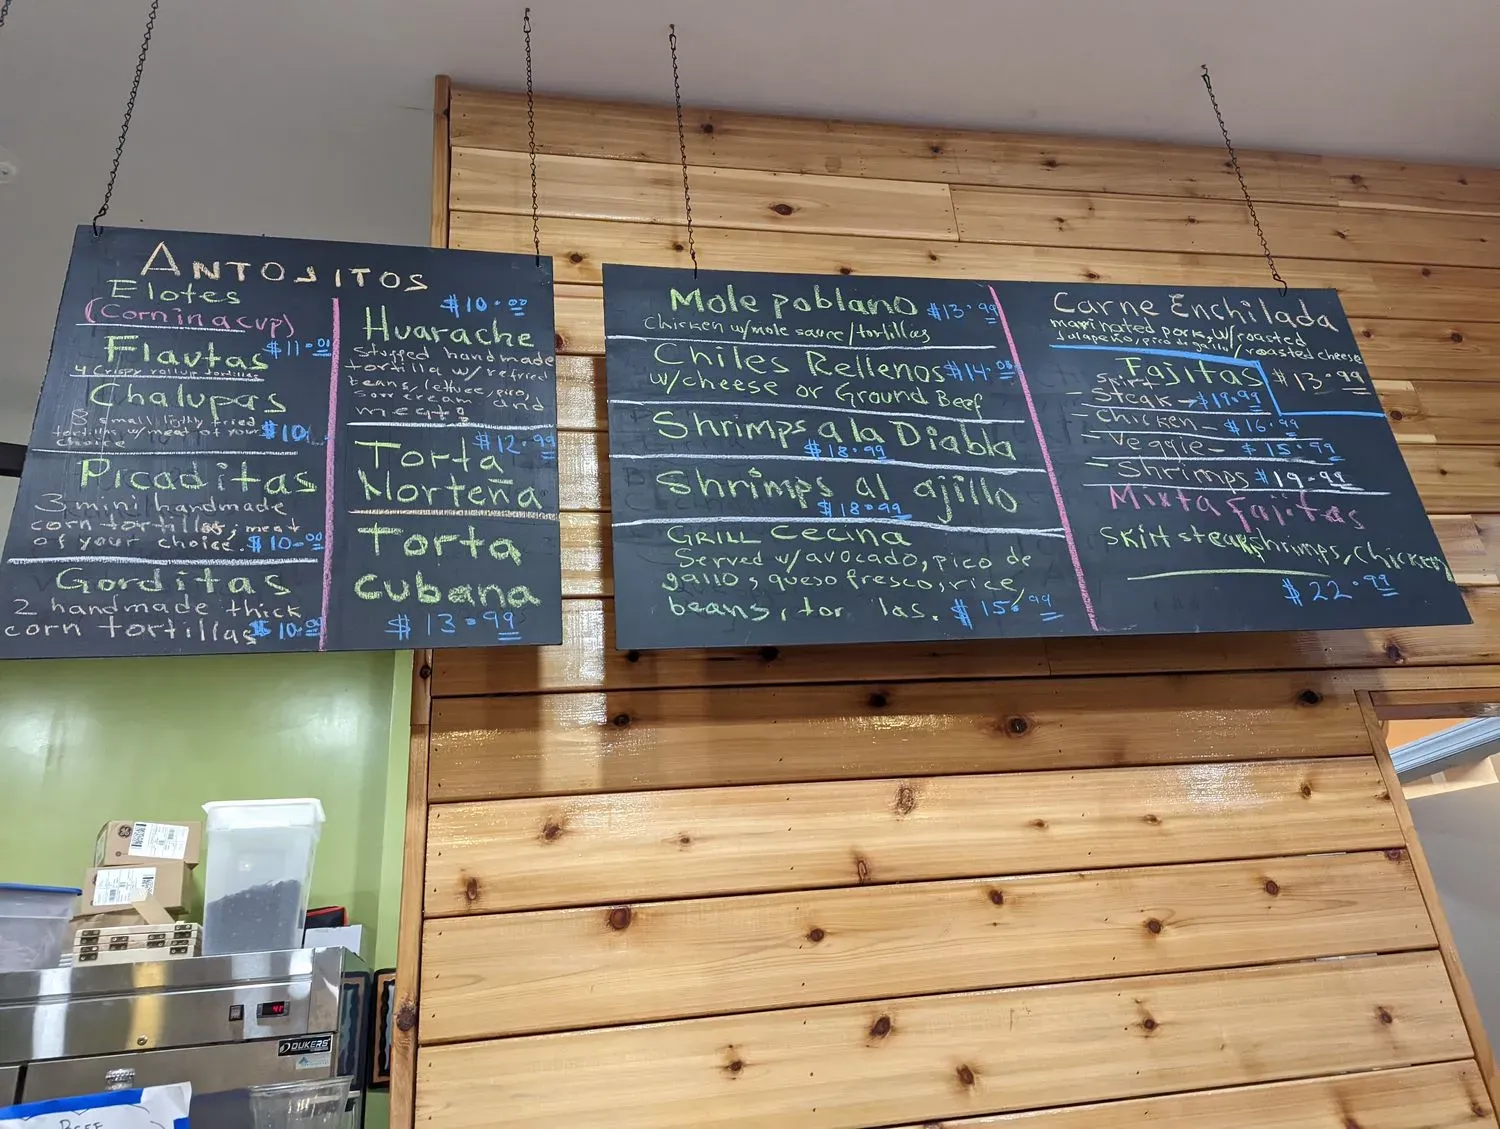 ANTOJITOS
Elotes
(Corn in a cup)
Flautas $11.00
4 Crispy rollup tortillas
Chalupas
3 small lightly fried
tortillas w/meat of your $10
choice
Picaditas
3 mini handmade
corn tortillas, meat
of your choice. $10.00
Gorditas
2 handmade thick
corn tortillas $10.99
$10.00
Huarache
Stuffed handmade
tortilla w/refried
beans, lettuce, pico,
sour cream and
meats
$12.99
Torta
Norteña
Torta
cubana
$13.99
Mole poblano $13.99
Chicken w/mole sauce/tortillas
Chiles Rellenos $14.00
w/cheese or Ground Beef
Shrimps a la Diabla
$18.99
Shrimps al ajillo
$18.99
GRILL CECINA
Served w/avocado, pico de
gallo, queso fresco, rice,
beans, tor las. $15.99
Carne Enchilada
marinated pork, w/roasted
Jalapeño, pico de gallo w/roasted cheese
$13.99
Fajitas
Steak $19.99
- Chicken - $16.99
- Veggie - $15.99
- Shrimps $19.99
Mixta fajitas
Skirt steak, shrimps, chicken
$22.99
41
DUKERS
BEEF